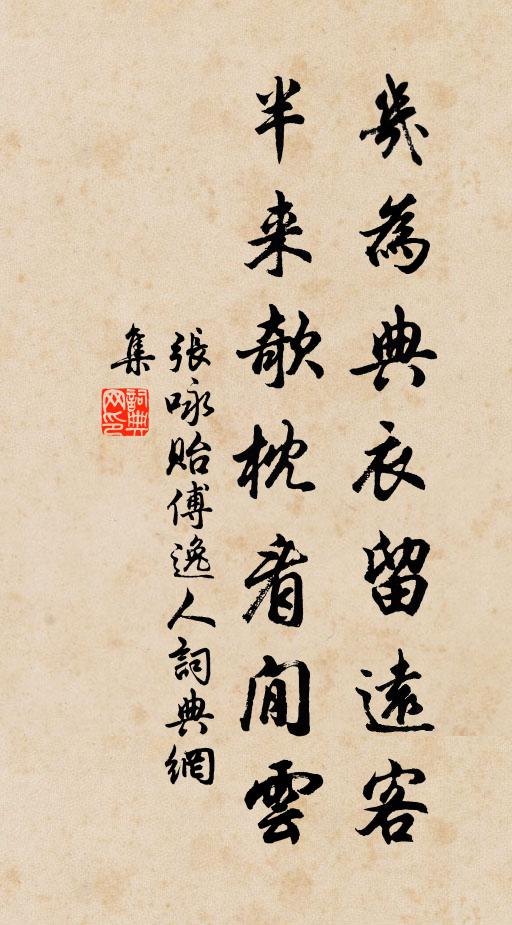 幾為典衣留遠客
半来欹枕看閒雲
張咏貽傅逸人詞典網
集
詞典网印